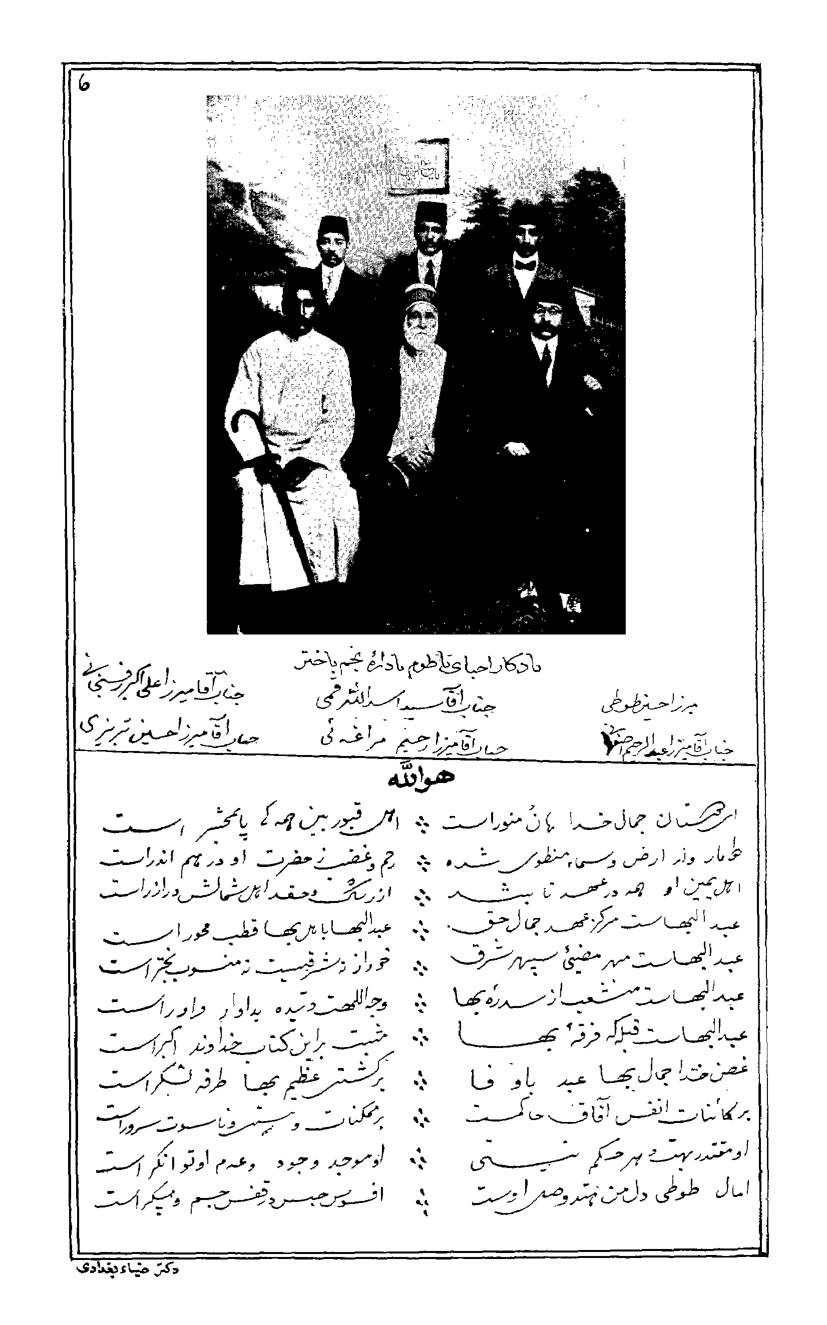 ۶
یادکار احبای خارطوم باداره نجم باختر
میرزا حسین طوطی جناب آقا سید اسدالله قمی جناب آقا میرزا علی اکبر رفسنجانی
جناب آقا میرزا عبدالرحیم جناب آقا میرزا رحیم مراغه ئی جناب آقا میرزا حسین تبریزی
هوالله
جمال خدا منور است اهل قبور بین همه پا محشر است
طومار وار ارض و سماء منطوی شده رحم و غضب حضرت او در هم اندر است
اهل یمین او همه در عهد از و حقد اهل شمالش در آذر است
عبدالبهاست مرکز عهد جمال حق عبدالبها باهل بها قطب محور است
عبدالبهاست مهر مضیئی سپهر شرق نه شرقیست نه منسوب است
عبدالبهاست منشعب از سدرهٔ بها وجه اللهست است
عبدالبهاست قبله که فرقهٔ بها مثبت براین کتاب خداوند اکبر است
غصن خدا جمال بها عبد با وفا بر کشتی عظیم بها طرفه لنگر است
بر کائنات انفس آفاق حاکمست بر ممکنات و هستی و ناسوت سرور است
او مقتدر بهست و بهر حکم نیستی او موجد وجود و عدم او است
آمال طوطی دل من وصل اوست افسوس حبس در قفس جسم و پیکر است
دکتر ضیاء بغدادی